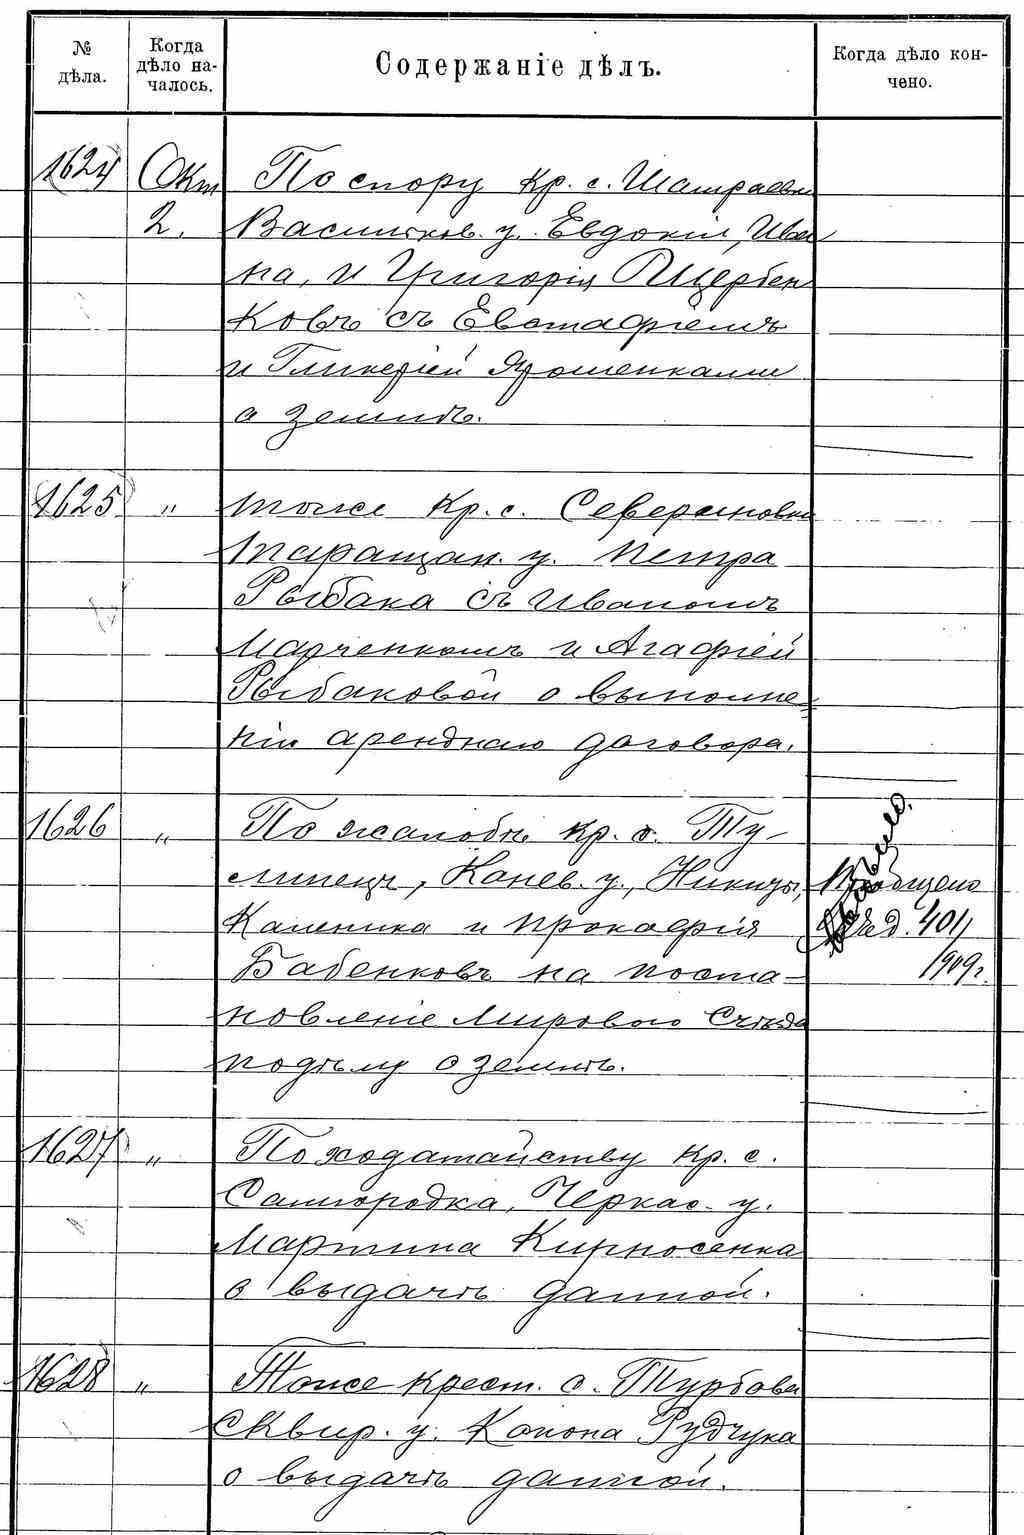 №
дѣла.
Когда
дѣло на-
чалось.
Содержаніе дѣлъ.
Когда дѣло кон-
чено.
1624
Окт
2.
По спору кр. с. Шамраевки
Васильков. у. Евдокіи, Ива
на, и Григорія Щербен
ковъ съ Евстафіемъ
и Гликеріей Ярошенками
о землѣ.
1625
"
тоже кр. с. Севериновки
Таращан. у. Петра
Рыбака съ Иваномъ
Марченкомъ и Агафіей
Рыбаковой о выполне=
ніи аренднаго договора.
1626
"
По жалобѣ кр. с. Ту-
линецъ, Канев. у., Никиты,
Каленика и Прокофія
Бабенковъ на поста-
новленіе Мирового Съѣзда
по дѣлу о землѣ.
401
1909 г.
1627
"
По ходатайству кр. с.
Самгородка, Черкас. у.
Мартина Кирносенка
о выдачѣ данной.
1628
"
Тоже крест. с. Турбова
Сквир. у. Конона Рудчука
о выдачѣ данной.